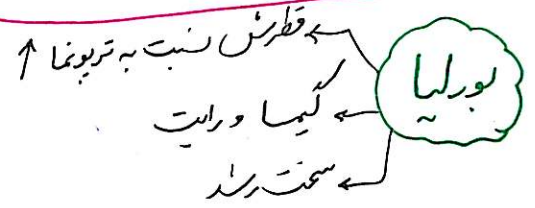 بورلیا
قطرش نسبت به تریپونما ↑
گیمسا و رایت
سخت رشد